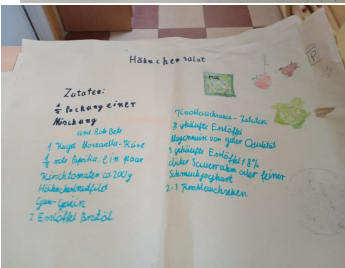 Hähnchensalat
Zutaten:
1/2 Packung einer
Mischung
1 Kugel Mozzarella-Käse
1/2 rote Paprika, ein paar
Kirschtomaten ca 200g
Hähnchenbrustfilet
2 Esslöffel Bratöl
Knoblauchsauce-Zutaten:
3 gehäufte Esslöffel
Mayonnaise von guter Qualität
3 gehäufte Esslöffel 18%
dicker Sauerrahm oder feiner
2-3 Knoblauchzehen.
P